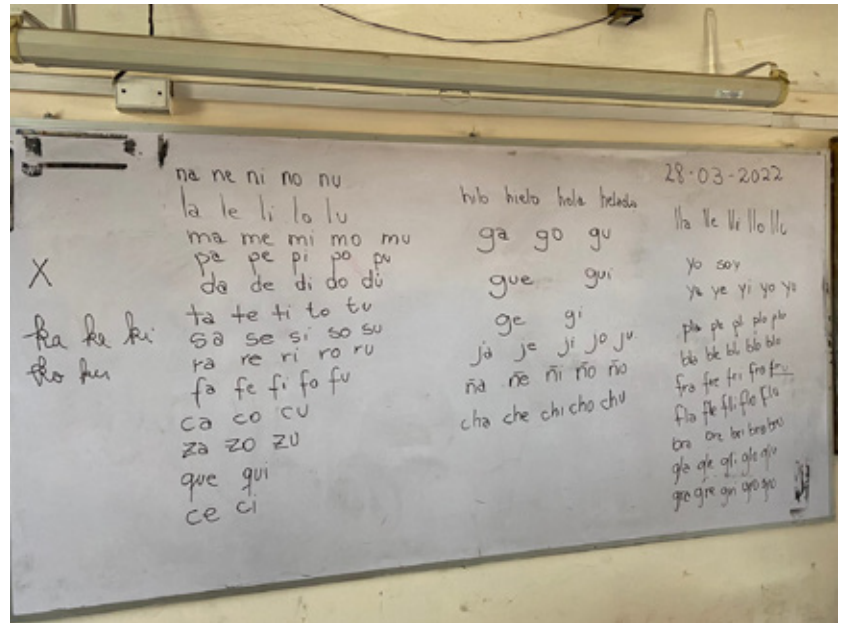 X
ka ke ki
ko ku
na ne ni no nu
la le li lo lu
ma me mi mo mu
pa pe pi po pu
da de di do du
ta te ti to tu
sa se si so su
ra re ri ro ru
fa fe fi fo fu
ca co cu
za zo zu
que qui
ce ci
hilo hielo hola helado
ga go gu
gue gui
ge gi
ja je ji jo ju
ña ñe ñi ño ño
cha che chi cho chu
28-03-2022
lla lle lli llo llu
yo soy
ya ye yi yo yu
fra fre fri fro fru
fla fle fli flo flu
bra bre bri bro bru
gla gle gli glo glu
gra gre gri gro